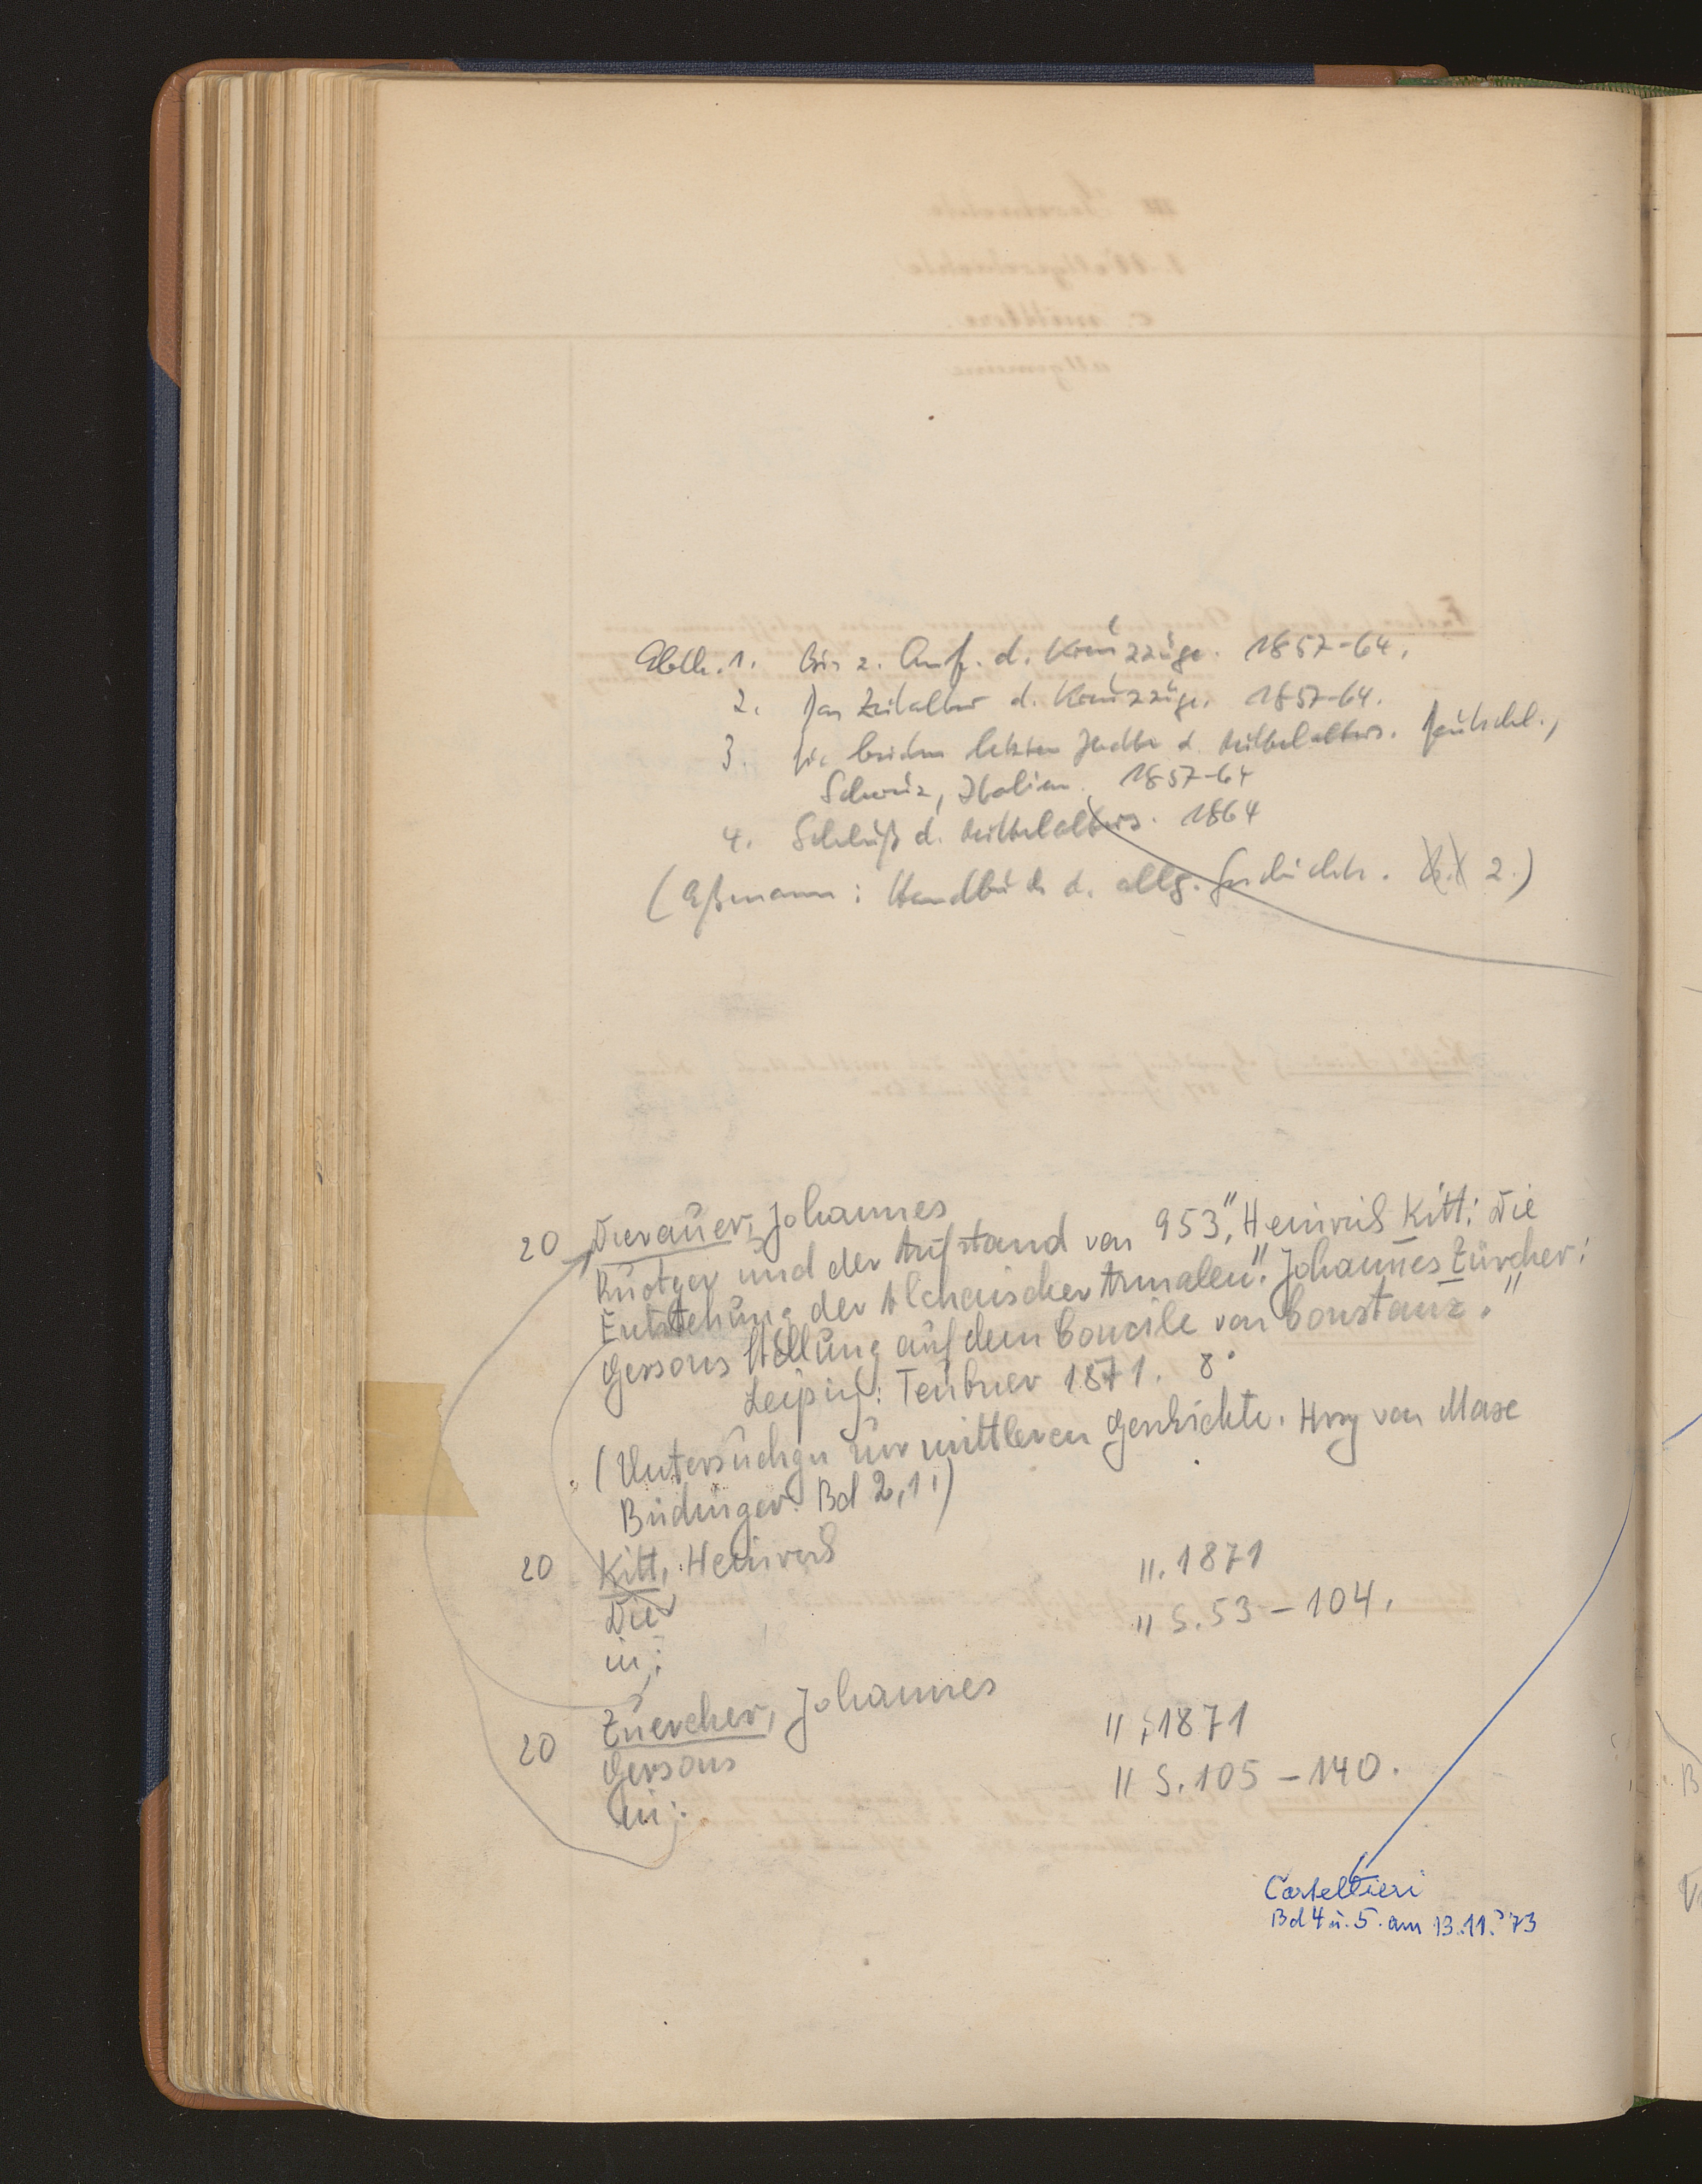 Abth. 1. Bis z. Anf. d. Kreuzzüge. 1857-64.
2. Das Zeitalter d. Kreuzzüge. 1857-64.
3. Die beiden letzten Jhdte d. Mittelalters. Deutschl.,
Schweiz, Italien. 1857-64
4. Schluß d. Mittelalters. 1864
(Aßmann: Handbuch d. allg. Geschichte. 2.)
20 Dierauer, Johannes
Ruotger und der Aufstand von 953," Heinrich Kitt: Die
Entstehung der Altchaischer Annalen". Johannes Zürcher:
Gersons Stellung auf dem Concile von Constanz."
Leipzig: Teubner 1871. 8°
(Untersuchgn zur mittleren Geschichte. Hrsg von Max
Büdinger. Bd 2,1.)
20 Kitt, Heinrich ". 1871
Die " S. 53-104.
in:
20 Zuercher, Johannes
Gersons " ; 1871
in: " S. 105-140.
Cartellieri
Bd 4 u. 5. am 13.11.'73